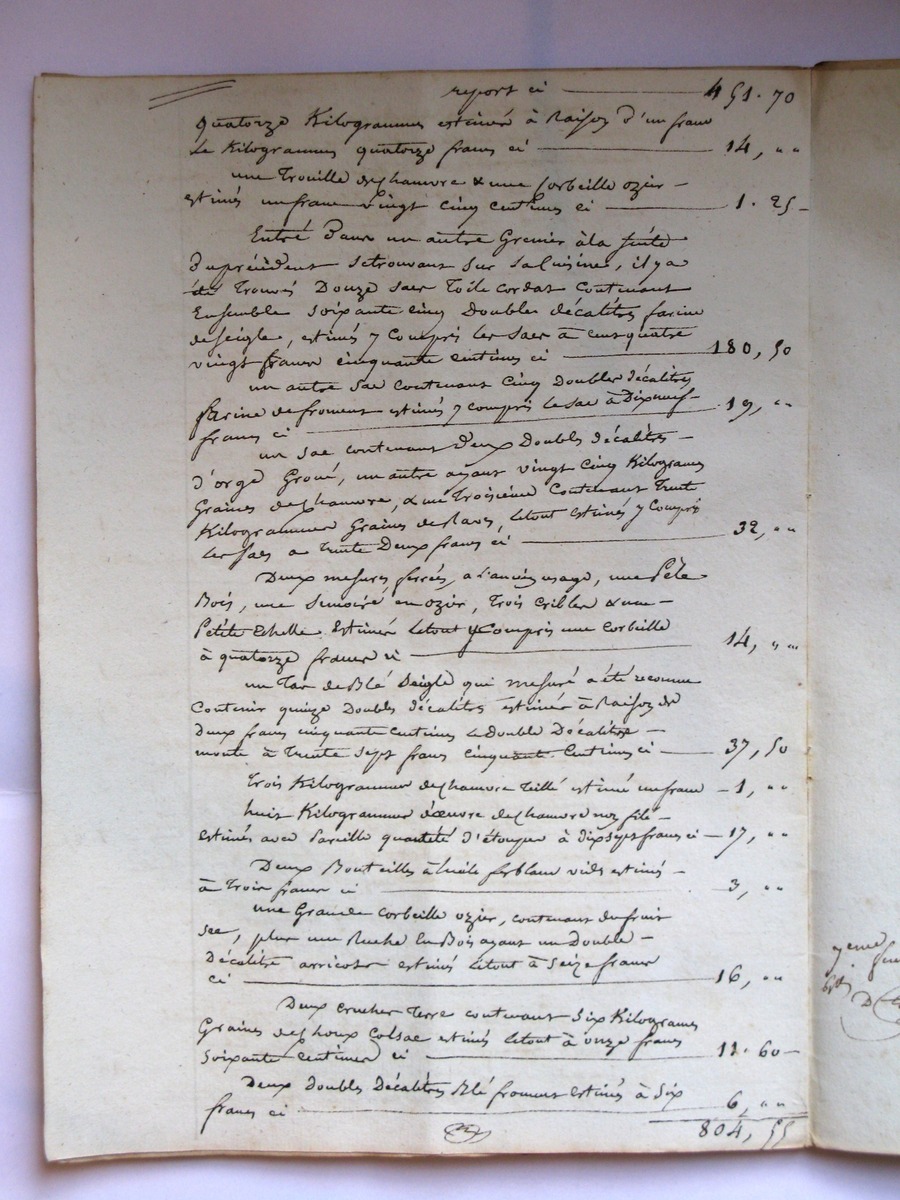 report ci 451.70
quatorze Kilogrammes estimés à Raison d'un franc
le Kilogrammes quatorze francs ci 14, " "
une Trouille de Chamvre & une Corbeille ozier
estimés un franc vingt cinq centimes ci 1.25
Entré Dans un autre Grenier à la suite
du précédent se trouvant sur la Cuisine, il y a
été Trouvés Douze sacs Toile cordat contenant
Ensemble soixante cinq Doubles décalitres farine
de seigle, estimés y compris les sacs à cent quatre
vingt francs cinquante centimes ci 180,50
un autre sac contenant Cinq Doubles décalitres
farine de froment estimés y compris le sac à Dix neuf
francs ci 19, " "
un sac contenant deux Doubles décalitres
d'orge Groué, un autre ayant vingt cinq Kilogrames
Graines de Chamvre, & un Troisième Contenant Trente
Kilogrammes Graines de Raves, le tout estimés y Compris
les sacs à Trente Deux francs ci 32, " "
Deux mesures ferrées, à l'ancien usage, une Pèle
Bois, une en ozier, Trois cribles & une
Petite Echelle Estimés le tout y Compris une Corbeille
à quatorze francs ci 14, " "
un Tas de Blé Seigle qui mesuré a été reconnu
Contenir quinze Doubles décalitres estimés à Raison de
deux francs cinquante centimes le double Décalitre
monte à Trente sept francs cinquante Centimes ci 37,50
Trois Kilogrammes de Chamvre Tillé estimé un franc 1, " "
huit Kilogrammes d'œuvre de Chamvre non filé
estimés avec Pareille quantité d'étoupe à dix sept francs ci 17, " "
Deux Bouteilles à huile ferblanc vides estimés
à Trois francs ci 3, " "
une Grande Corbeille ozier, contenant du fruit
sec, plus une Ruche En Bois ayant un Double
Décalitre arricots estimés le tout à Seize francs
ci 16, " "
Deux cruches Terre contenant Six Kilogrames
Graines de Choux Colsac estimés le tout à onze francs
soixante centimes ci 11.60
Deux doubles Décalitres Blé froment estimés à Six
francs ci 6, " "
804,55